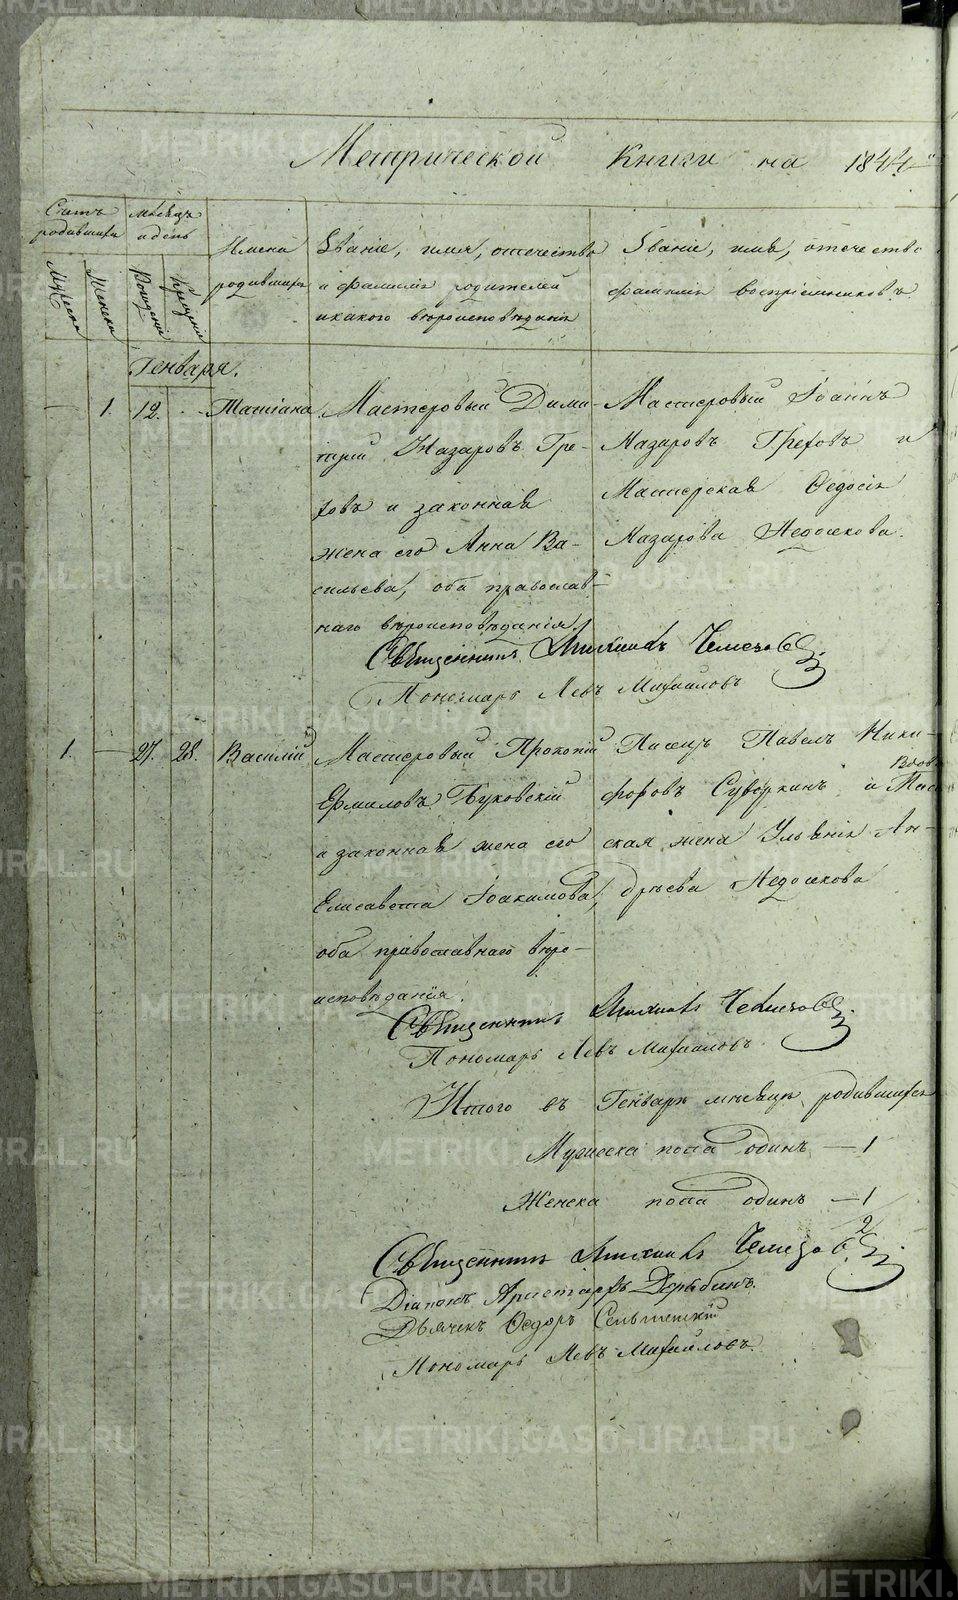 Метрической Книги на 1844
Счетъ родившихся
Мѣсяцъ и день
Имена родившихся
Званіе, имя, отечество и фамилія родителей и какого вѣроисповѣданія
Званіе, имя, отечество фамилія воспріемниковъ
Мужеска
Женска
Рожденія
Крещенія
Генваря.
— 1. 12. Татіана. Мастеровый Дими-
трій Назаровъ Гре-
ховъ и законная
жена его Анна Ва-
сильева, оба православ-
наго вѣроисповѣданія
Мастеровый Іоаннъ
Назаровъ Греховъ и
Мастерская Ѳедосія
Назарова Недошкова.
Священникъ Чемезовъ
Пономарь Левъ Михайловъ
1. — 27. 28. Василій Мастеровый Прокопій
Ермиловъ Буковскій
и законная жена его
Елисавета Іоакимова,
оба православнаго вѣро-
исповѣданія.
Писецъ Павелъ Ники-
форовъ Суворкинъ и
ская жена Ульянія Ан-
дрѣева Недошкова
Священникъ Чемезовъ
Пономарь Левъ Михайловъ.
Итого въ Генварѣ мѣсяцѣ родившихся
Мужеска пола одинъ — 1
Женска пола одинъ — 1
2
Священникъ Чемезовъ
Діаконъ Аристархъ Дерябинъ.
Дьячекъ Ѳедоръ Сельменскій
Пономарь Левъ Михайловъ.
METRIKI.GASO-URAL.RU